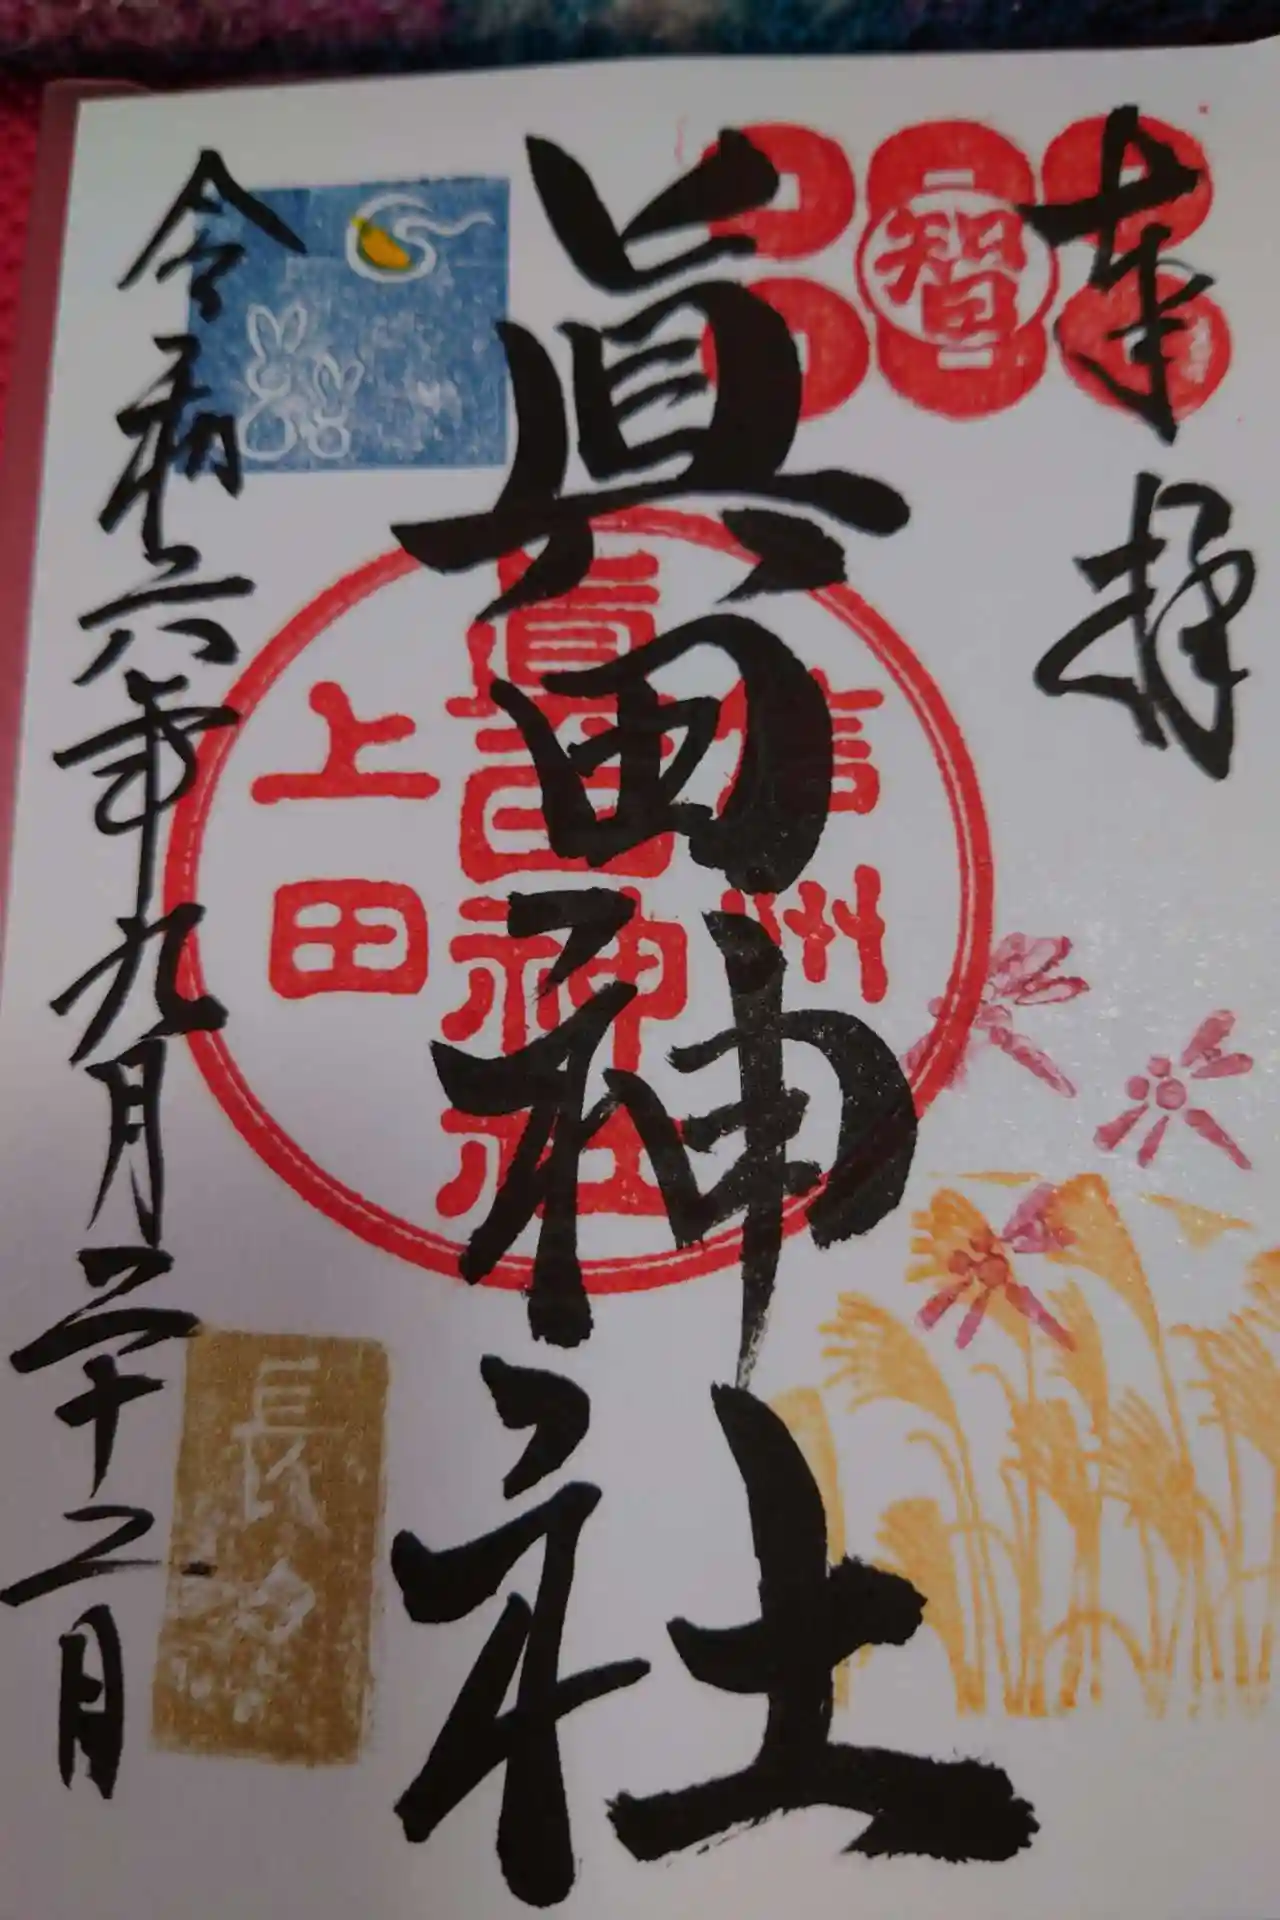 奉拝
智
眞田神社
信州
眞田神社
上田
令和六年九月二十二日
長月